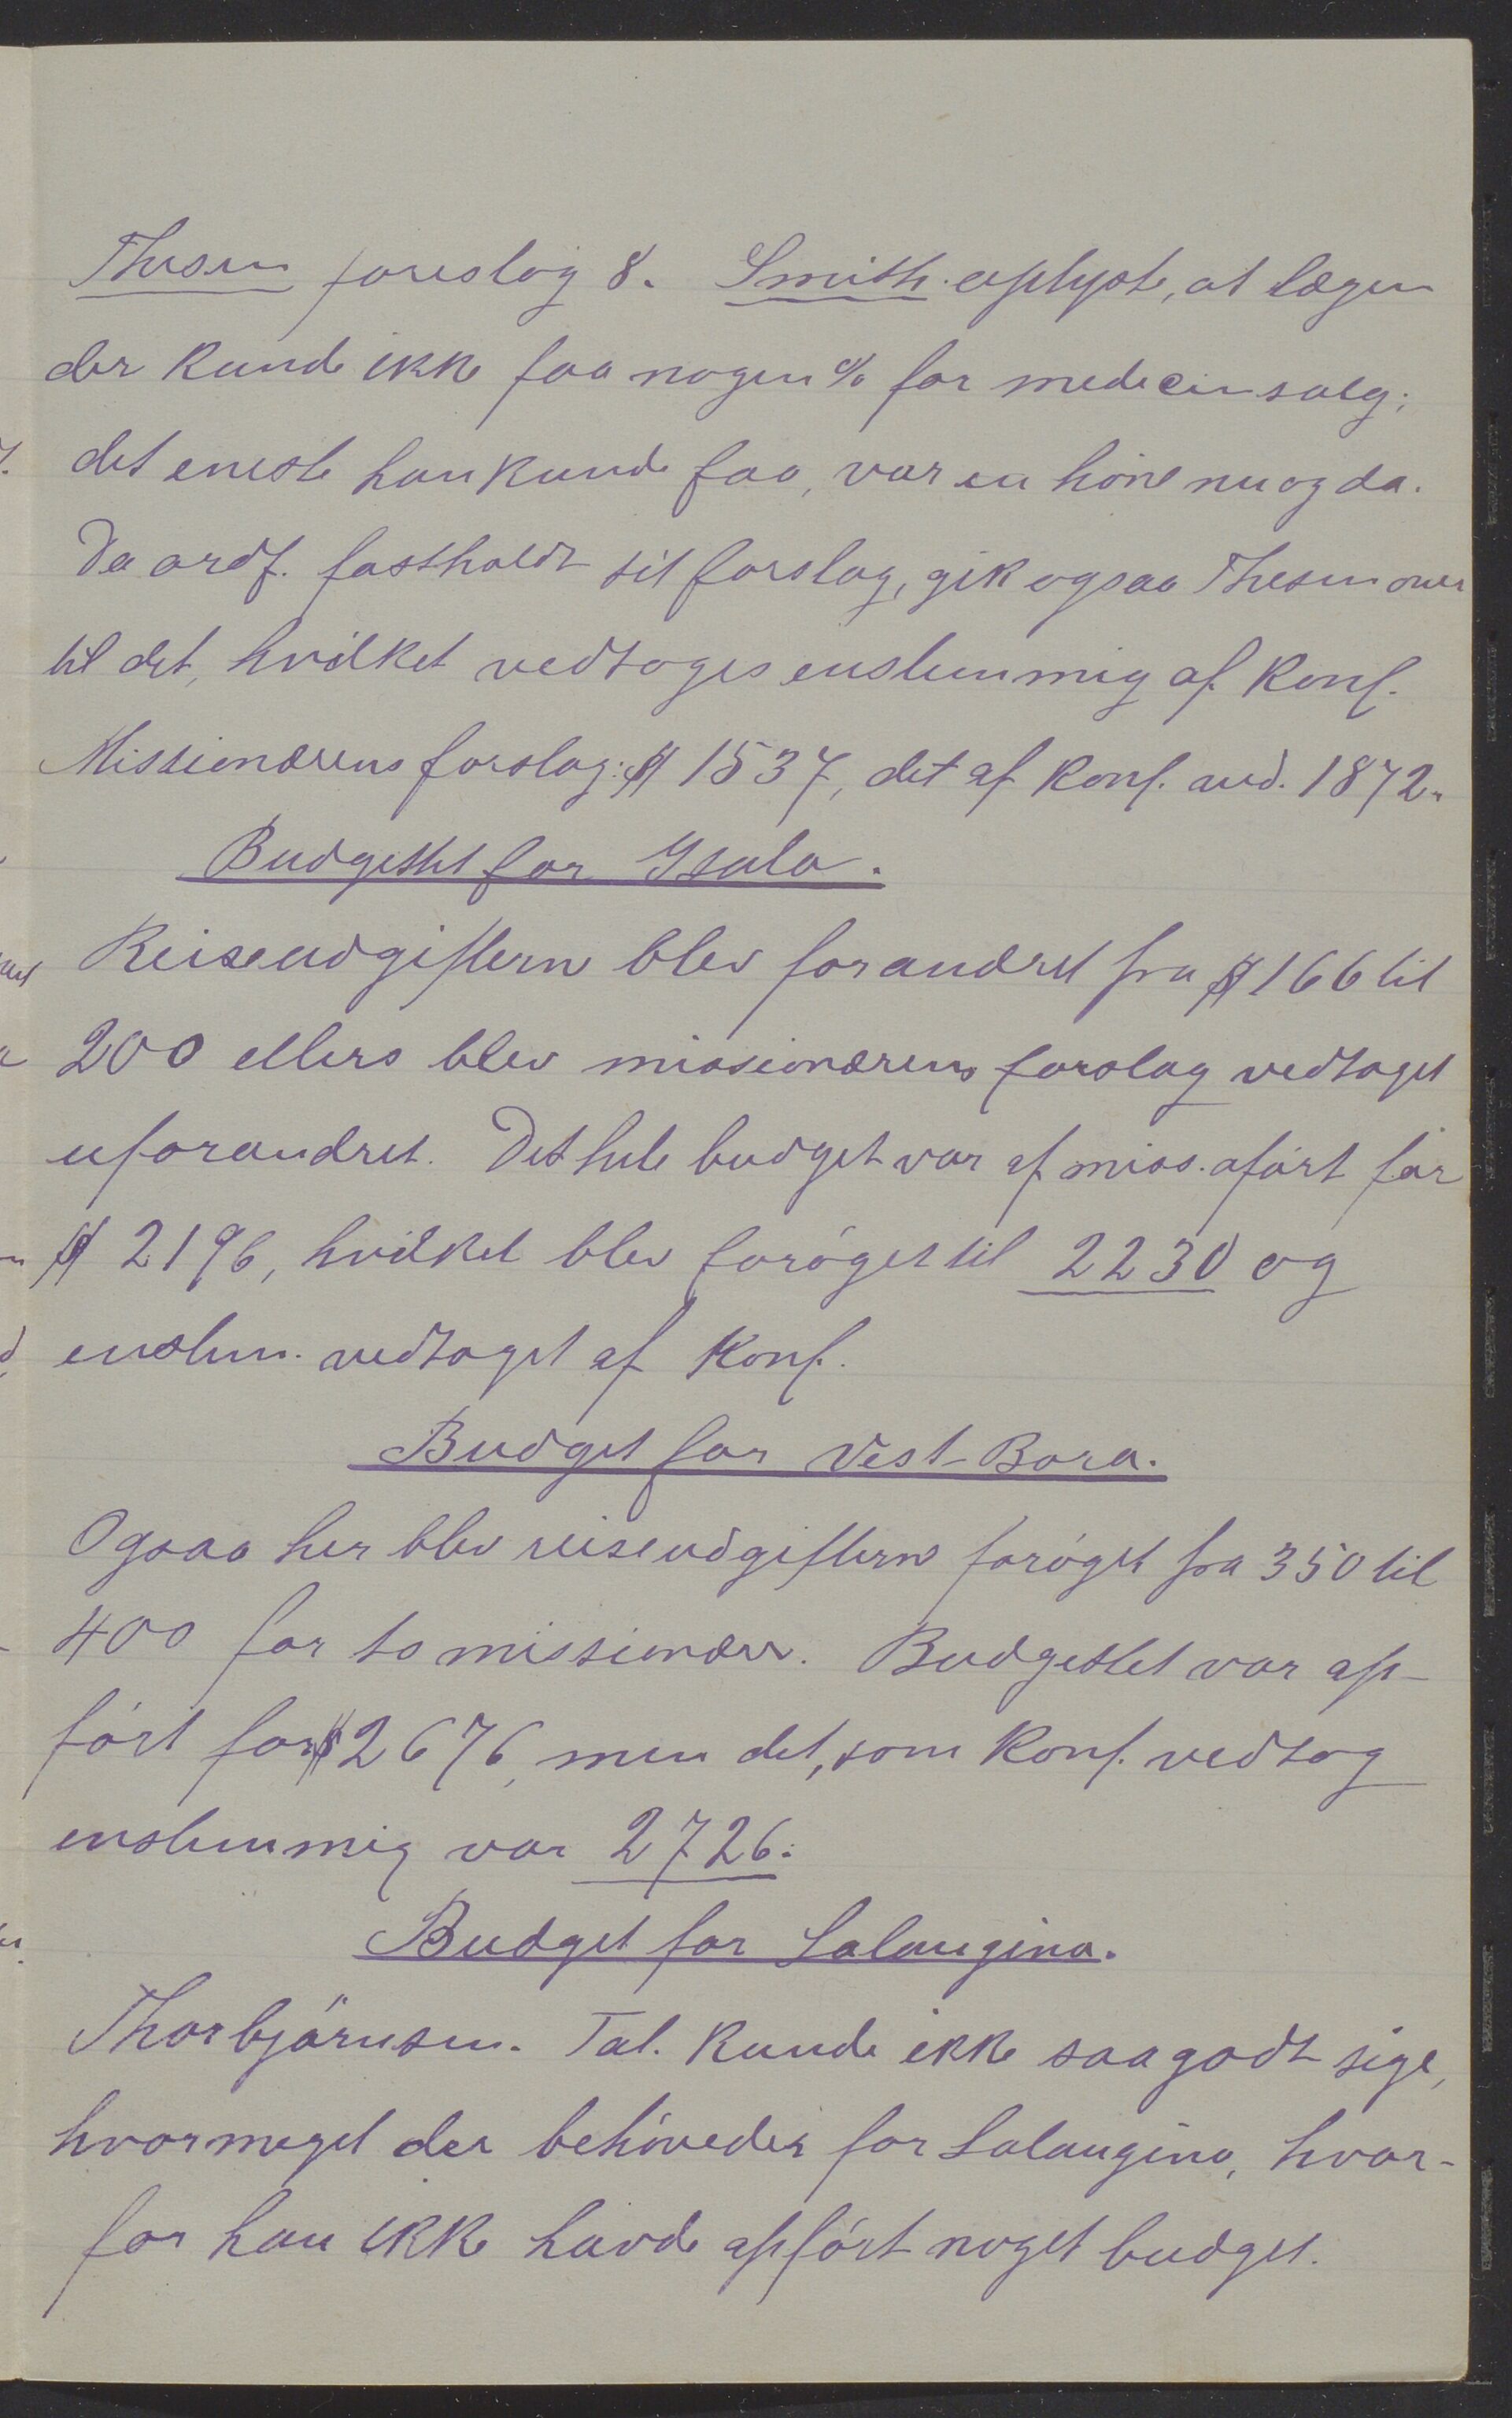 Thesen foreslog 8. Smith oplyste, at lægen
der kunde ikke faa nogen % for medicinsalg;
det eneste han kunde faa, var en høne nu og da.
Da ordf. fastholdt sit forslag, gik ogsaa Thesen over
til det, hvilket vedtoges enstemmig af konf.
Missionærens forslag: $ 1537, det af konf. and. 1872.
Budgettet for Isalo.
Reiseudgifterne blev forandret fra $ 166 til
200 ellers blev missionærens forslag vedtaget
uforandret. Det hele budget var af miss. opført for
$ 2196, hvilket blev forøget til 2230 og
enstem. vedtaget af konf.
Budget for Vest-Bara.
Ogsaa her blev reiseudgifterne forøget fra 350 til
400 for to missionærer. Budgettet var op-
ført for $ 2676, men det, som konf. vedtog
enstemmig var 2726.
Budget for Salangina.
Thorbjørnsen. Tal. kunde ikke saa godt sige,
hvormeget der behøvedes for Salangina, hvor-
for han ikke havde opført noget budget.